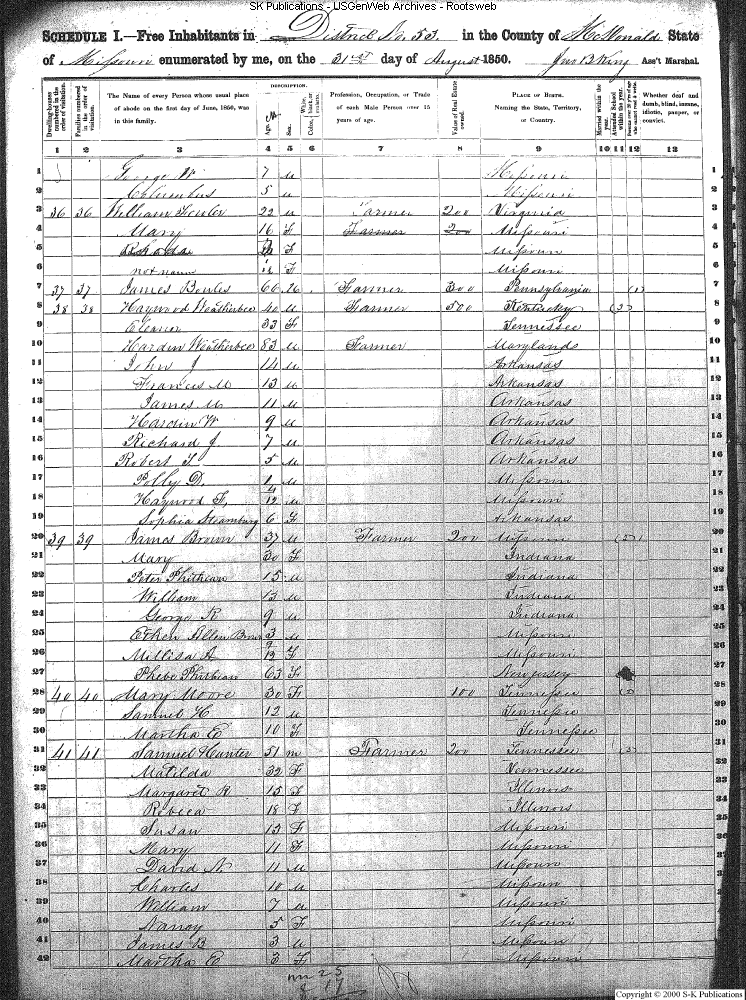 SK Publications - USGenWeb Archives - Rootsweb
SCHEDULE I.—Free Inhabitants in District No. 53 in the County of McDonald State
of Missouri enumerated by me, on the 31st day of August 1850. Jno B King Ass't Marshal.
Dwelling-houses numbered in the order of visitation. Families numbered in the order of visitation. The Name of every Person whose usual place of abode on the first day of June, 1850, was in this family. DESCRIPTION. Age. Sex. Color, White, black, or mulatto. Profession, Occupation, or Trade of each Male Person over 15 years of age. Value of Real Estate owned. PLACE OF BIRTH. Naming the State, Territory, or Country. Married within the year. Attended School within the year. Persons over 20 y'rs of age who cannot read & write. Whether deaf and dumb, blind, insane, idiotic, pauper, or convict.
1 2 3 4 5 6 7 8 9 10 11 12 13
1 George W 7 M Missouri 1
2 Columbus 5 M Missouri 2
3 36 36 William Fowler 22 M Farmer 200 Virginia 3
4 Mary 16 F Farmer 200 Missouri 4
5 Rhoda F Missouri 5
6 not name F Missouri 6
7 37 37 James Bowles 66 Farmer 300 Pennsylvania 7
8 38 38 Haywood Weatherbee 40 M Farmer 500 Kentucky 8
9 Eleanor 33 F Tennessee 9
10 Hardin Weatherbee 83 M Farmer Maryland 10
11 John J 14 M Arkansas 11
12 Frances M 13 M Arkansas 12
13 James M 11 M Arkansas 13
14 Hardin W 9 M Arkansas 14
15 Richard J 7 M Arkansas 15
16 Robert T 5 M Arkansas 16
17 Polly D. 1 M Missouri 17
18 Haywood F. 4/12 M Missouri 18
19 Sophia 6 F Arkansas 19
20 39 39 James Brown 37 M Farmer 200 Missouri 20
21 Mary 30 F Indiana 21
22 Peter 15 M Indiana 22
23 William 13 M Indiana 23
24 George R 9 M Indiana 24
25 Ethen Allen Brown 3 M Missouri 25
26 Millisa A 9/12 F Missouri 26
27 Phebe 63 F New Jersey 27
28 40 40 Mary Moore 30 F 100 Tennessee 28
29 Samuel H 12 M Tennessee 29
30 Martha E 10 F Tennessee 30
31 41 41 Samuel Hunter 51 m Farmer 200 Tennessee 31
32 Matilda 32 F Tennessee 32
33 Margaret R 15 F Illinois 33
34 Rebeca 18 F Illinois 34
35 Susan 13 F Missouri 35
36 Mary 11 F Missouri 36
37 David N. 11 M Missouri 37
38 Charles 10 M Missouri 38
39 William 7 M Missouri 39
40 Nancy 5 F Missouri 40
41 James B 3 M Missouri 41
42 Martha E 3 F Missouri 42
25
17
Copyright © 2000 S-K Publications